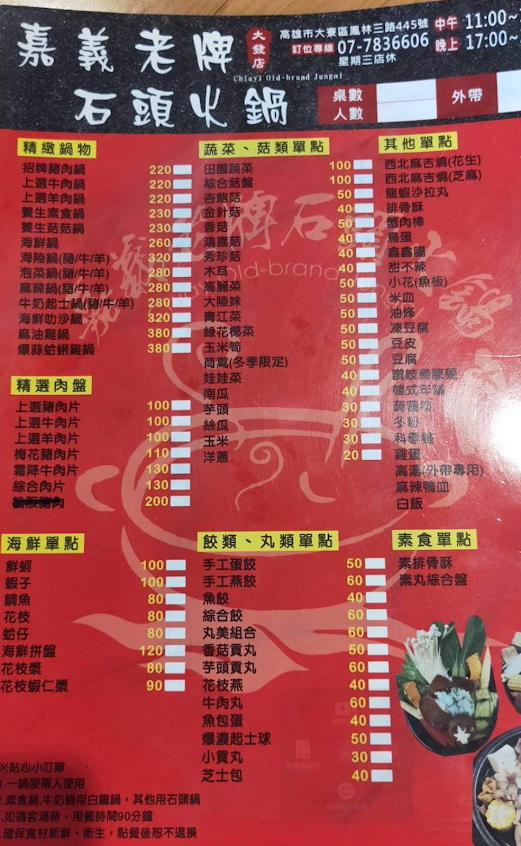 嘉義老牌
大發店
石頭火鍋
Chiayi Old-brand Jungol
高雄市大寮區鳳林三路445號
訂位專線 07-7836606
星期三店休
中午 11:00~
晚上 17:00~
桌數
人數
外帶
精緻鍋物
招牌豬肉鍋 220
上選牛肉鍋 220
上選羊肉鍋 220
養生素食鍋 230
養生菇菇鍋 230
海鮮鍋 260
海陸鍋(豬/牛/羊) 320
泡菜鍋(豬/牛/羊) 280
麻辣鍋(豬/牛/羊) 280
牛奶起士鍋(豬/牛/羊) 280
海鮮叻沙鍋 320
麻油雞鍋 380
爆蒜蛤蜊雞鍋 380
精選肉盤
上選豬肉片 100
上選牛肉片 100
上選羊肉片 100
梅花豬肉片 110
霜降牛肉片 130
綜合肉片 130
200
海鮮單點
鮮蚵 100
蝦子 100
鯛魚 80
花枝 80
蛤仔 80
海鮮拼盤 120
花枝漿 80
花枝蝦仁漿 90
蔬菜、菇類單點
田園蔬菜 100
綜合菇盤 100
杏鮑菇 50
金針菇 40
香菇 50
鴻喜菇 40
秀珍菇 40
木耳 40
高麗菜 50
大陸妹 50
青江菜 50
綠花椰菜 50
玉米筍 50
茼蒿(冬季限定) 50
娃娃菜 40
南瓜 40
芋頭 30
絲瓜 30
玉米 30
洋蔥 20
餃類、丸類單點
手工蛋餃 50
手工燕餃 60
魚餃 40
綜合餃 60
丸美組合 60
香菇貢丸 50
芋頭貢丸 60
花枝燕 40
牛肉丸 60
魚包蛋 40
爆濃起士球 50
小貢丸 30
芝士包 40
其他單點
西北麻吉燒(花生)
西北麻吉燒(芝麻)
龍蝦沙拉丸
排骨酥
蟹肉棒
鳥蛋
鑫鑫腸
甜不辣
小花(魚板)
米血
油條
凍豆腐
豆皮
豆腐
讚岐烏龍麵
韓式年糕
蒟蒻
冬粉
科學麵
雞蛋
高湯(外帶專用)
麻辣鴨血
白飯
素食單點
素排骨酥
素丸綜合盤
※貼心小叮嚀
1.一鍋限兩人使用
2.素食鍋.牛奶鍋用白鐵鍋，其他用石頭鍋
3.如遇客滿時，用餐時間90分鐘
4.確保食材新鮮、衛生，點餐後恕不退換